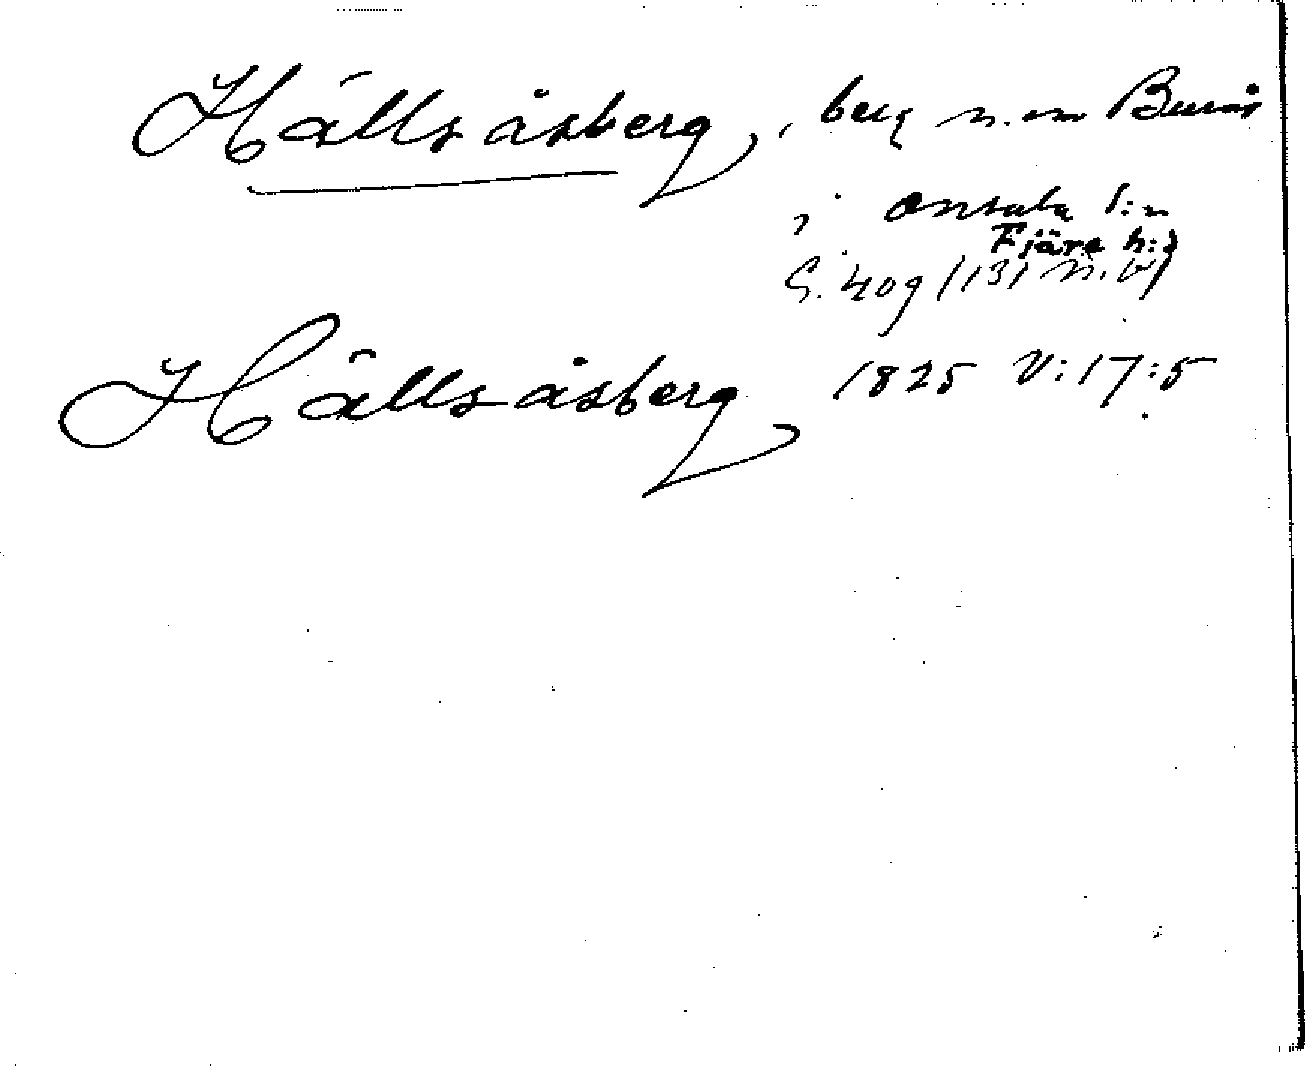 Hällsåsberg, berg n.om Burås
i Onsala s:n
Fjäre h:d
G. 409 (131 n.v)
Hällsåsberg 1825 V:17:5